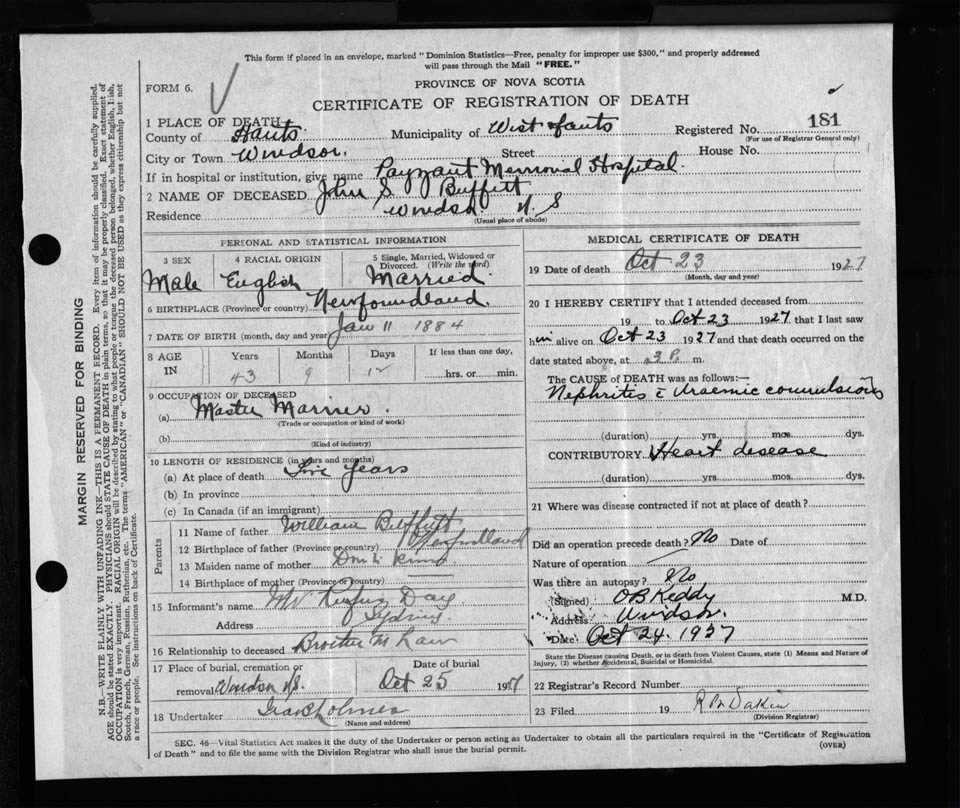 This form if placed in an envelope, marked "Dominion Statistics—Free, penalty for improper use $300," and properly addressed
will pass through the Mail "FREE."
FORM 6.
PROVINCE OF NOVA SCOTIA
CERTIFICATE OF REGISTRATION OF DEATH
1 PLACE OF DEATH
County of Hants Municipality of West Hants Registered No. 181
(For use of Registrar General only)
City or Town Windsor. Street House No.
If in hospital or institution, give name Payzant Memorial Hospital
2 NAME OF DECEASED John S. Buffett
Residence Windsor N. S
(Usual place of abode)
PERSONAL AND STATISTICAL INFORMATION
3 SEX Male
4 RACIAL ORIGIN English
5 Single, Married, Widowed or Divorced. (Write the word) Married
6 BIRTHPLACE (Province or country) Newfoundland.
7 DATE OF BIRTH (month, day and year) Jan 11 1884
8 AGE IN Years Months Days If less than one day,
43 9 12 hrs. or min.
9 OCCUPATION OF DECEASED
(a) Master Mariner.
(Trade or occupation or kind of work)
(b)
(Kind of industry)
10 LENGTH OF RESIDENCE (in years and months)
(a) At place of death years
(b) In province
(c) In Canada (if an immigrant)
Parents
11 Name of father William Buffett
12 Birthplace of father (Province or country) Newfoundland
13 Maiden name of mother Don't know
14 Birthplace of mother (Province or country)
15 Informant's name Mr Rufus Day
Address Sydney
16 Relationship to deceased Brother in Law
17 Place of burial, cremation or removal Windsor N.S. Date of burial Oct 25 1927
18 Undertaker
(Name and address)
MEDICAL CERTIFICATE OF DEATH
19 Date of death Oct 23 1927
(Month, day and year)
20 I HEREBY CERTIFY that I attended deceased from
19 to Oct 23 1927 that I last saw
him alive on Oct 23 1927 and that death occurred on the
date stated above, at 3 P. m.
The CAUSE of DEATH was as follows:—
Nephritis c̄ Uraemic convulsions
(duration) yrs. mos. dys.
CONTRIBUTORY Heart disease
(duration) yrs. mos. dys.
21 Where was disease contracted if not at place of death?
Did an operation precede death? No Date of
Nature of operation
Was there an autopsy? No
(Signed) O B Keddy M.D.
Address Windsor
Date Oct 24. 1927
State the Disease causing Death, or in death from Violent Causes, state (1) Means and Nature of
Injury, (2) whether Accidental, Suicidal or Homicidal.
22 Registrar's Record Number
23 Filed 19 Dakin
(Division Registrar)
SEC. 46—Vital Statistics Act makes it the duty of the Undertaker or person acting as Undertaker to obtain all the particulars required in the "Certificate of Registration
of Death" and to file the same with the Division Registrar who shall issue the burial permit. (OVER)
MARGIN RESERVED FOR BINDING
N.B.—WRITE PLAINLY WITH UNFADING INK—THIS IS A PERMANENT RECORD. Every item of information should be carefully supplied.
AGE should be stated EXACTLY. PHYSICIANS should STATE CAUSE OF DEATH in plain terms, so that it may be properly classified. Exact statement of
OCCUPATION is very important. RACIAL ORIGIN will be described by stating to what people or tongue the deceased person belonged, whether English, Irish,
Scotch, French, German, Russian, Ruthenian, etc. The terms "AMERICAN" or "CANADIAN" SHOULD NOT BE USED as they express citizenship but not
a race or people. See instructions on back of Certificate.